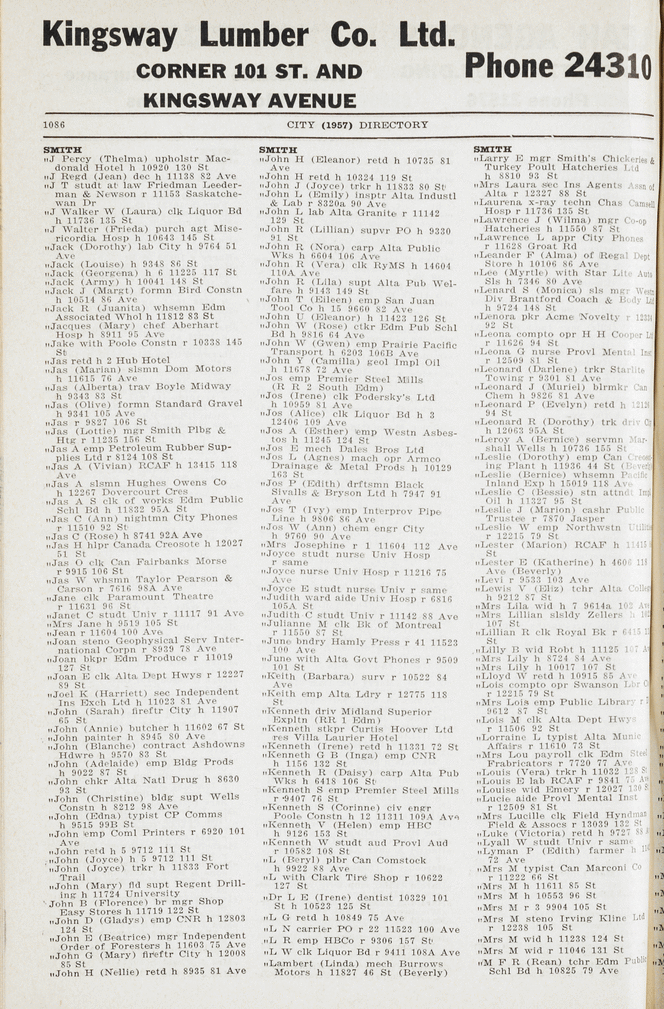 Kingsway Lumber Co. Ltd.
CORNER 101 ST. AND
KINGSWAY AVENUE
Phone 24310
1086
CITY (1957) DIRECTORY
SMITH
"J Percy (Thelma) upholstr Mac-
donald Hotel h 10920 130 St
"J Regd (Jean) dec h 11138 82 Ave
"J T studt at law Friedman Leeder-
man & Newson r 11153 Saskatche-
wan Dr
"J Walker W (Laura) clk Liquor Bd
h 11736 135 St
"J Walter (Frieda) purch agt Mise-
ricordia Hosp h 10643 145 St
"Jack (Dorothy) lab City h 9764 51
Ave
"Jack (Louise) h 9348 86 St
"Jack (Georgena) h 6 11225 117 St
"Jack (Army) h 10041 148 St
"Jack J (Margt) formn Bird Constn
h 10514 86 Ave
"Jack R (Juanita) whsemn Edm
Associated Whol h 11812 83 St
"Jacques (Mary) chef Aberhart
Hosp h 8911 95 Ave
"Jake with Poole Constn r 10338 145
St
"Jas retd h 2 Hub Hotel
"Jas (Marian) slsmn Dom Motors
h 11615 76 Ave
"Jas (Alberta) trav Boyle Midway
h 9343 83 St
"Jas (Olive) formn Standard Gravel
h 9341 105 Ave
"Jas r 9827 106 St
"Jas (Lottie) mgr Smith Plbg &
Htg r 11235 156 St
"Jas A emp Petroleum Rubber Sup-
plies Ltd r 8124 108 St
"Jas A (Vivian) RCAF h 13415 118
Ave
"Jas A slsmn Hughes Owens Co
h 12267 Dovercourt Cres
"Jas A S clk of works Edm Public
Schl Bd h 11832 95A St
"Jas C (Ann) nightmn City Phones
r 11510 92 St
"Jas C (Rose) h 8741 92A Ave
"Jas H hlpr Canada Creosote h 12027
51 St
"Jas O clk Can Fairbanks Morse
r 9915 106 St
"Jas W whsmn Taylor Pearson &
Carson r 7616 98A Ave
"Jane clk Paramount Theatre
r 11631 96 St
"Janet C studt Univ r 11117 91 Ave
"Mrs Jane h 9519 105 St
"Jean r 11604 100 Ave
"Joan steno Geophysical Serv Inter-
national Corpn r 8939 78 Ave
"Joan bkpr Edm Produce r 11019
127 St
"Joan E clk Alta Dept Hwys r 12227
89 St
"Joel K (Harriett) sec Independent
Ins Exch Ltd h 11023 81 Ave
"John (Sarah) fireftr City h 11907
65 St
"John (Annie) butcher h 11602 67 St
"John painter h 8945 80 Ave
"John (Blanche) contract Ashdowns
Hdwre h 9570 83 St
"John (Adelaide) emp Bldg Prods
h 9022 87 St
"John chkr Alta Natl Drug h 8630
93 St
"John (Christine) bldg supt Wells
Constn h 8212 98 Ave
"John (Edna) typist CP Comms
h 9515 99B St
"John emp Coml Printers r 6920 101
Ave
"John retd h 5 9712 111 St
"John (Joyce) h 5 9712 111 St
"John (Joyce) trkr h 11833 Fort
Trail
"John (Mary) fld supt Regent Drill-
ing h 11724 University
"John B (Florence) br mgr Shop
Easy Stores h 11719 122 St
"John D (Gladys) emp CNR h 12803
124 St
"John E (Beatrice) mgr Independent
Order of Foresters h 11603 75 Ave
"John G (Mary) fireftr City h 12008
85 St
"John H (Nellie) retd h 8935 81 Ave
SMITH
"John H (Eleanor) retd h 10735 81
Ave
"John H retd h 10324 119 St
"John J (Joyce) trkr h 11833 80 St
"John L (Emily) insptr Alta Industl
& Lab r 8320a 90 Ave
"John L lab Alta Granite r 11142
129 St
"John R (Lillian) supvr PO h 9330
91 St
"John R (Nora) carp Alta Public
Wks h 6604 106 Ave
"John R (Vera) clk RyMS h 14604
110A Ave
"John R (Lila) supt Alta Pub Wel-
fare h 9143 149 St
"John T (Eileen) emp San Juan
Tool Co h 15 9660 82 Ave
"John U (Eleanor) h 11423 126 St
"John W (Rose) ctkr Edm Pub Schl
Bd h 9816 64 Ave
"John W (Gwen) emp Prairie Pacific
Transport h 6203 106B Ave
"John Y (Camilla) geol Impl Oil
h 11678 72 Ave
"Jos emp Premier Steel Mills
(R R 2 South Edm)
"Jos (Irene) clk Podersky's Ltd
h 10959 81 Ave
"Jos (Alice) clk Liquor Bd h 3
12406 109 Ave
"Jos A (Esther) emp Westn Asbes-
tos h 11245 124 St
"Jos E mech Dales Bros Ltd
"Jos L (Agnes) mach opr Armco
Drainage & Metal Prods h 10129
163 St
"Jos P (Edith) drftsmn Black
Sivalls & Bryson Ltd h 7947 91
Ave
"Jos T (Ivy) emp Interprov Pipe
Line h 9806 86 Ave
"Jos W (Ann) chem engr City
h 9760 90 Ave
"Mrs Josephine r 1 11604 112 Ave
"Joyce studt nurse Univ Hosp
r same
"Joyce nurse Univ Hosp r 11216 75
Ave
"Joyce E studt nurse Univ r same
"Judith ward aide Univ Hosp r 6816
105A St
"Judith C studt Univ r 11142 88 Ave
"Julianne M clk Bk of Montreal
r 11550 87 St
"June bndry Hamly Press r 41 11523
100 Ave
"June with Alta Govt Phones r 9509
101 St
"Keith (Barbara) surv r 10522 84
Ave
"Keith emp Alta Ldry r 12775 118
St
"Kenneth driv Midland Superior
Expltn (RR 1 Edm)
"Kenneth stkpr Curtis Hoover Ltd
res Villa Laurier Hotel
"Kenneth (Irene) retd h 11331 72 St
"Kenneth G B (Inga) emp CNR
h 1156 132 St
"Kenneth R (Daisy) carp Alta Pub
Wks h 6418 106 St
"Kenneth S emp Premier Steel Mills
r 9407 76 St
"Kenneth S (Corinne) civ engr
Poole Constn h 12 11311 109A Ave
"Kenneth V (Helen) emp HBC
h 9126 153 St
"Kenneth W studt aud Provl Aud
r 10582 108 St
"L (Beryl) plbr Can Comstock
h 9922 88 Ave
"L with Clark Tire Shop r 10622
127 St
"Dr L E (Irene) dentist 10329 101
St h 10523 125 St
"L G retd h 10849 75 Ave
"L N carrier PO r 22 11523 100 Ave
"L R emp HBCo r 9306 157 St
"L W clk Liquor Bd r 9411 108A Ave
"Lambert (Linda) mech Burrows
Motors h 11827 46 St (Beverly)
SMITH
"Larry E mgr Smith's Chickeries &
Turkey Poult Hatcheries Ltd
h 8810 93 St
"Mrs Laura sec Ins Agents Assn of
Alta r 12327 88 St
"Laurena x-ray techn Chas Camsell
Hosp r 11736 135 St
"Lawrence J (Wilma) mgr Co-op
Hatcheries h 11550 87 St
"Lawrence L appr City Phones
r 11628 Groat Rd
"Leander F (Alma) of Regal Dept
Store h 10106 86 Ave
"Lee (Myrtle) with Star Lite Auto
Sls h 7346 80 Ave
"Lenard S (Monica) sls mgr Westn
Div Brantford Coach & Body Ltd
h 9724 148 St
"Lenora pkr Acme Novelty r
92 St
"Leona compto opr H H Cooper
r 11626 94 St
"Leona G nurse Provl Mental
r 12509 81 St
"Leonard (Darlene) trkr Starlite
Towing r 9301 81 Ave
"Leonard J (Muriel) blrmkr Can
Chem h 9826 81 Ave
"Leonard P (Evelyn) retd h
94 St
"Leonard R (Dorothy) trk driv
h 12063 95A St
"Leroy A (Bernice) servmn Mar-
shall Wells h 10736 155 St
"Leslie (Dorothy) emp Can
ing Plant h 11936 44 St
"Leslie (Bernice) whsemn Pacific
Inland Exp h 15019 118 Ave
"Leslie C (Bessie) stn attndt
Oil h 11327 95 St
"Leslie J (Marion) cashr Public
Trustee r 7870 Jasper
"Leslie W emp Northwstn
r 12215 79 St
"Lester (Marion) RCAF h
St
"Lester E (Katherine) h 4606 118
Ave (Beverly)
"Levi r 9533 103 Ave
"Lewis V (Eliz) tchr Alta
h 9212 87 St
"Mrs Lila wid h 7 9614a 103 Ave
"Mrs Lillian slsldy Zellers h
107 St
"Lillian R clk Royal Bk r
St
"Lilly B wid Robt h 11125
"Mrs Lily h 8724 84 Ave
"Mrs Lily h 10017 107 St
"Lloyd W retd h 10915 85 Ave
"Lois compto opr Swanson Lbr
r 12215 79 St
"Mrs Lois emp Public Library r
9612 87 St
"Lois M clk Alta Dept Hwys
r 11506 92 St
"Lorraine L typist Alta Munic
Affairs r 11610 73 St
"Mrs Lou payroll clk Edm Steel
Frabricators r 7720 77 Ave
"Louis (Vera) trkr h 11032
"Louis E lab RCAF r 9841 75
"Louise wid Emery r 12027 130
"Lucie aide Provl Mental Inst
r 12509 81 St
"Mrs Lucille clk Field Hyndman
Field & Assocs r 13039 132 St
"Luke (Victoria) retd h 9727
"Lyall W studt Univ r same
"Lyman P (Edith) farmer h
72 Ave
"Mrs M typist Can Marconi Co
r 11222 66 St
"Mrs M h 11611 85 St
"Mrs M h 10553 96 St
"Mrs M r 3 9904 105 St
"Mrs M steno Irving Kline Ltd
r 12238 105 St
"Mrs M wid h 11238 124 St
"Mrs M wid r 11046 131 St
"M F R (Rean) tchr Edm Public
Schl Bd h 10825 79 Ave